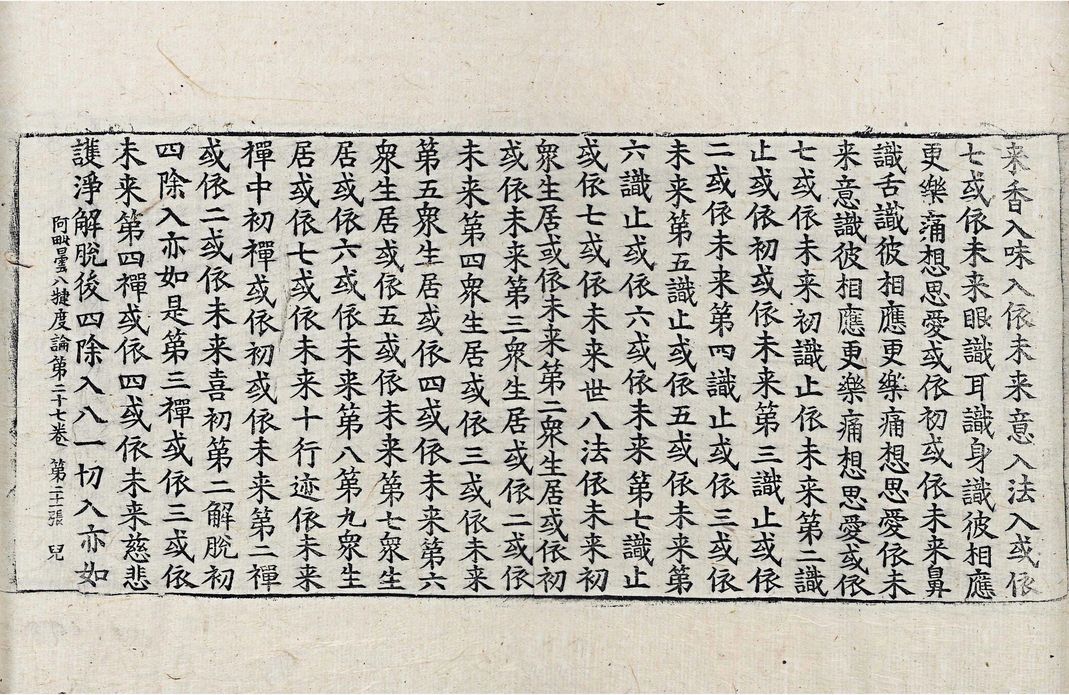 来香入味入依未来意入法入或依
七或依未来眼識耳識身識彼相應
更樂痛想思愛或依初或依未来鼻
識舌識彼相應更樂痛想思愛依未
来意識彼相應更樂痛想思愛或依
七或依未来初識止依未来第二識
止或依初或依未来第三識止或依
二或依未来第四識止或依三或依
未来第五識止或依五或依未来第
六識止或依六或依未来第七識止
或依七或依未来世八法依未来初
衆生居或依未来第二衆生居或依初
或依未来第三衆生居或依二或依
未来第四衆生居或依三或依未来
第五衆生居或依四或依未来第六
衆生居或依五或依未来第七衆生
居或依六或依未来第八第九衆生
居或依七或依未来十行迹依未来
禪中初禪或依初或依未来第二禪
或依二或依未来喜初第二解脱初
四除入亦如是第三禪或依三或依
未来第四禪或依四或依未来慈悲
護淨解脱後四除入八一切入亦如
阿毗曇八揵度論第二十七卷 第二十二張 兒